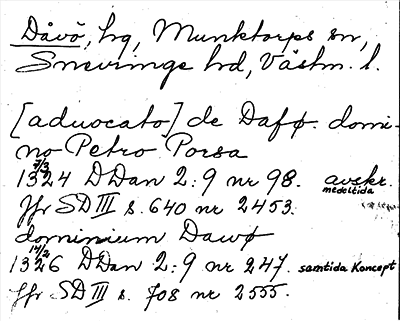 Dåvö, hg, Munktorps sn,
Snevringe hd, Västm. l.
[aduocato] de Dafø. domi-
no Petro Porsa
7/3
1324 DDan 2:9 nr 98. avskr.
medeltida
Jfr SD III s. 640 nr 2453.
dominium Dawø
14/2
1326 DDan 2:9 nr 247. samtida Koncept
Jfr SD III s. 708 nr 2555.